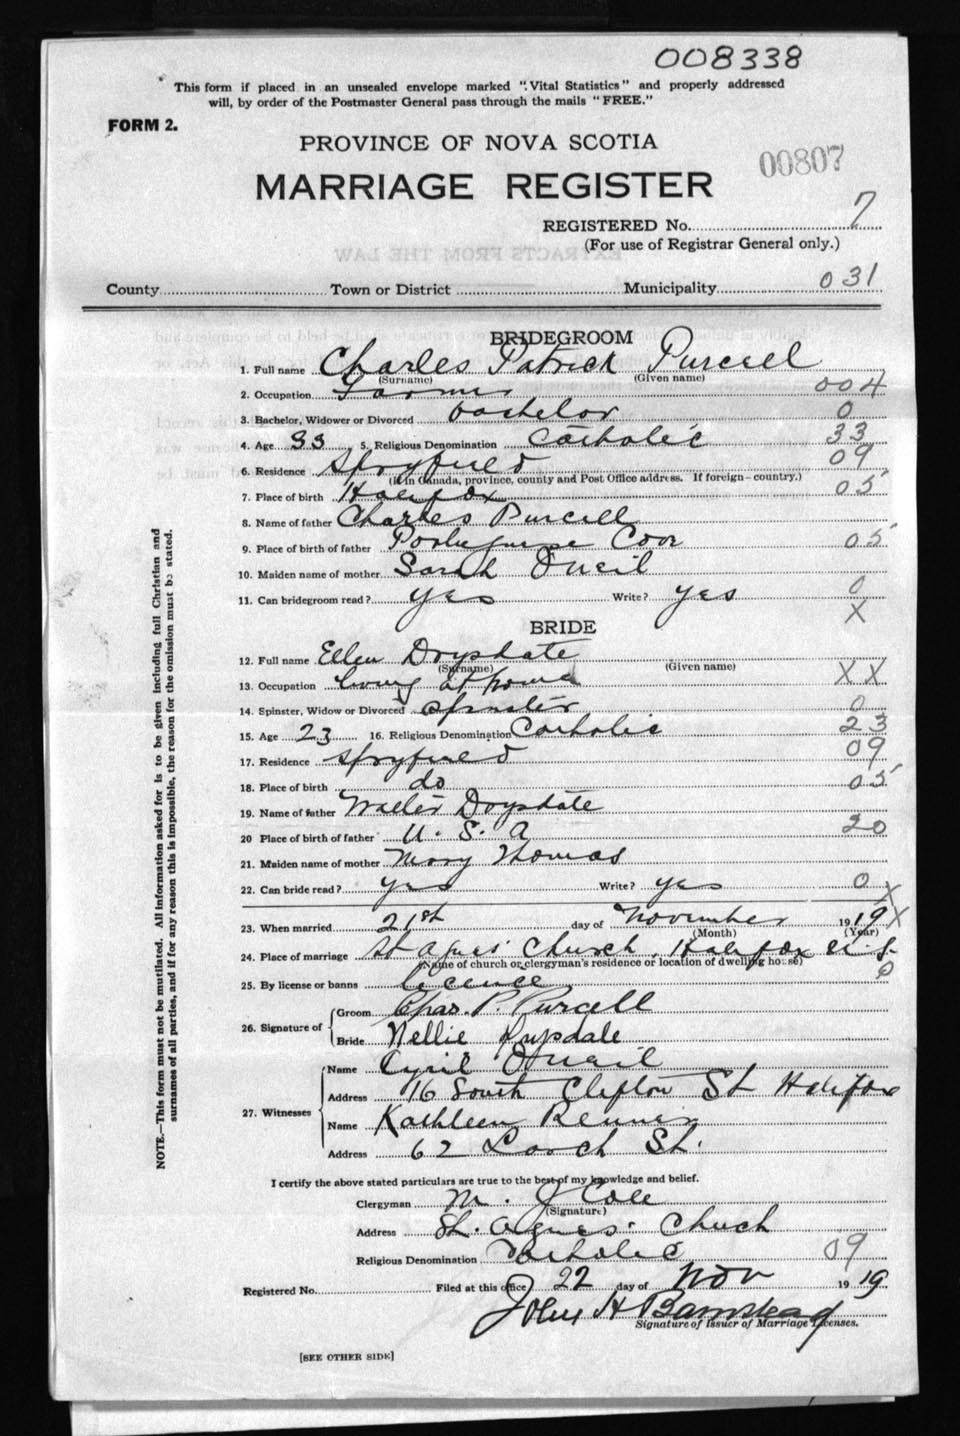 008338
This form if placed in an unsealed envelope marked "Vital Statistics" and properly addressed
will, by order of the Postmaster General pass through the mails "FREE."
FORM 2.
PROVINCE OF NOVA SCOTIA
00807
MARRIAGE REGISTER
REGISTERED No. 7
(For use of Registrar General only.)
EXTRACTS FROM THE LAW
County Town or District Municipality 031
BRIDEGROOM
1. Full name Charles Patrick Purcell
(Surname) (Given name)
2. Occupation Farmer 004
3. Bachelor, Widower or Divorced bachelor 0
4. Age 33 5. Religious Denomination Catholic 33
6. Residence Spryfield 09
(If in Canada, province, county and Post Office address. If foreign—country.)
7. Place of birth Halifax 05
8. Name of father Charles Purcell
9. Place of birth of father Portuguese Cove 05
10. Maiden name of mother Sarah O'Neil
11. Can bridegroom read? yes Write? yes 0
X
BRIDE
12. Full name Ellen Drysdale
(Surname) (Given name)
13. Occupation living at home X X
14. Spinster, Widow or Divorced Spinster 0
15. Age 23 16. Religious Denomination Catholic 23
17. Residence Spryfield 09
18. Place of birth do 05
19. Name of father Walter Drysdale
20 Place of birth of father U.S.A 20
21. Maiden name of mother Mary Thomas
22. Can bride read? yes Write? yes 0 X
23. When married 21st day of November 1919 X
(Month) (Year)
24. Place of marriage St Agnes' Church, Halifax N.S.
(Name of church or clergyman's residence or location of dwelling house) 0
25. By license or banns licence
26. Signature of
Groom Chas. P. Purcell
Bride Nellie Drysdale
27. Witnesses
Name Cyril O'Neil
Address 16 South Clifton St Halifax
Name Kathleen
Address 62 St.
I certify the above stated particulars are true to the best of my knowledge and belief.
Clergyman M. J Cole
(Signature)
Address St. Agnes' Church
Religious Denomination Catholic 09
Registered No. Filed at this office 22 day of Nov 1919
John H Barnstead
Signature of Issuer of Marriage Licenses.
[SEE OTHER SIDE]
NOTE.—This form must not be mutilated. All information asked for is to be given including full Christian and
surnames of all parties, and if for any reason this is impossible, the reason for the omission must be stated.